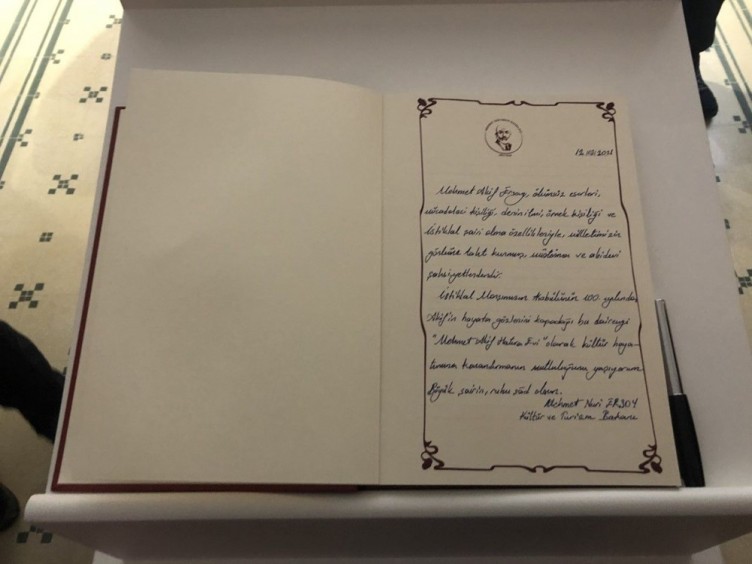 12.03.2021
Mehmet Akif Ersoy, ölümsüz eserleri,
mücadeleci kişiliği, derin ilmi, örnek kişiliği ve
İstiklal şairi olma özellikleriyle, milletimizin
gönlüne taht kurmuş, müstesna ve abidevi
şahsiyetlerdendir.
İstiklal Marşımızın Kabulünün 100. yılında,
Akif'in hayata gözlerini kapadığı bu daireyi
"Mehmet Akif Hatıra Evi" olarak kültür haya-
tımıza kazandırmanın mutluluğunu yaşıyorum.
Büyük şairin, ruhu şâd olsun.
Mehmet Nuri ERSOY
Kültür ve Turizm Bakanı